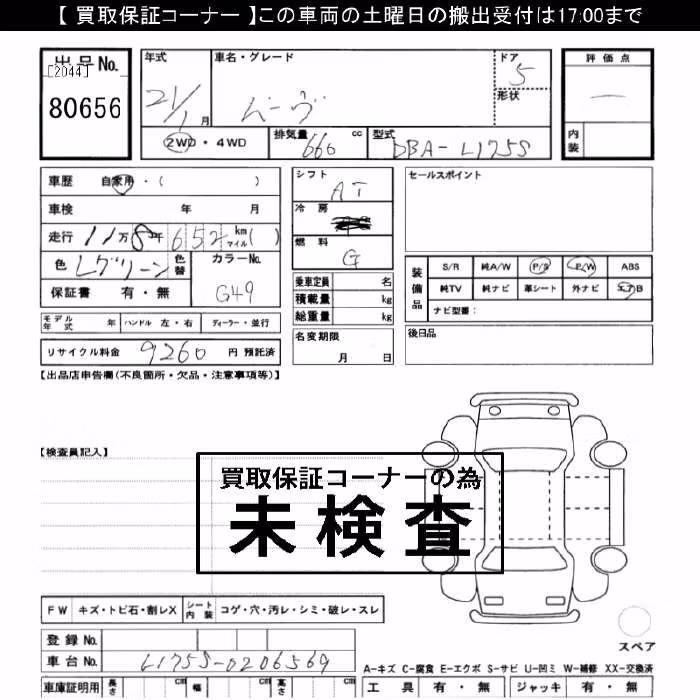 【 買取保証コーナー 】この車両の土曜日の搬出受付は17:00まで
出品No.
[2044]
80656
年式
21/1月
車名・グレード
ムーヴ
ドア
5
形状
評価点
―
内装
2WD・4WD
排気量 660 cc
型式 DBA-L175S
車歴 自家用・( )
車検 年 月
走行 11万8千652 km マイル( )
色 Lグリーン 色替
カラーNo. G49
保証書 有・無
シフト AT
冷房
燃料 G
乗車定員 名
積載量 kg
総重量 kg
セールスポイント
装備品
S/R 純A/W P/S P/W ABS
純TV 純ナビ 革シート 外ナビ エアB
ナビ型番:
モデル年式 年 ハンドル 左・右 ディーラー・並行
リサイクル料金 9260 円 預託済
名変期限
月 日
後日品
【出品店申告欄(不良箇所・欠品・注意事項等)】
【検査員記入】
買取保証コーナーの為
未検査
FW キズ・トビ石・割レX シート内装 コゲ・穴・汚レ・シミ・破レ・スレ
登録No.
車台No. L175S-0206569
スペア
A-キズ C-腐食 E-エクボ S-サビ U-凹ミ W-補修 XX-交換済
車庫証明用 長さ cm 幅 cm 高さ cm
工具 有・無 ジャッキ 有・無